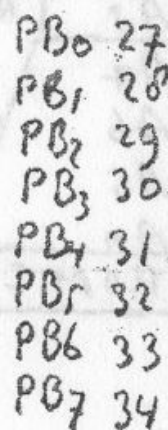 PB0 27
PB1 28
PB2 29
PB3 30
PB4 31
PB5 32
PB6 33
PB7 34